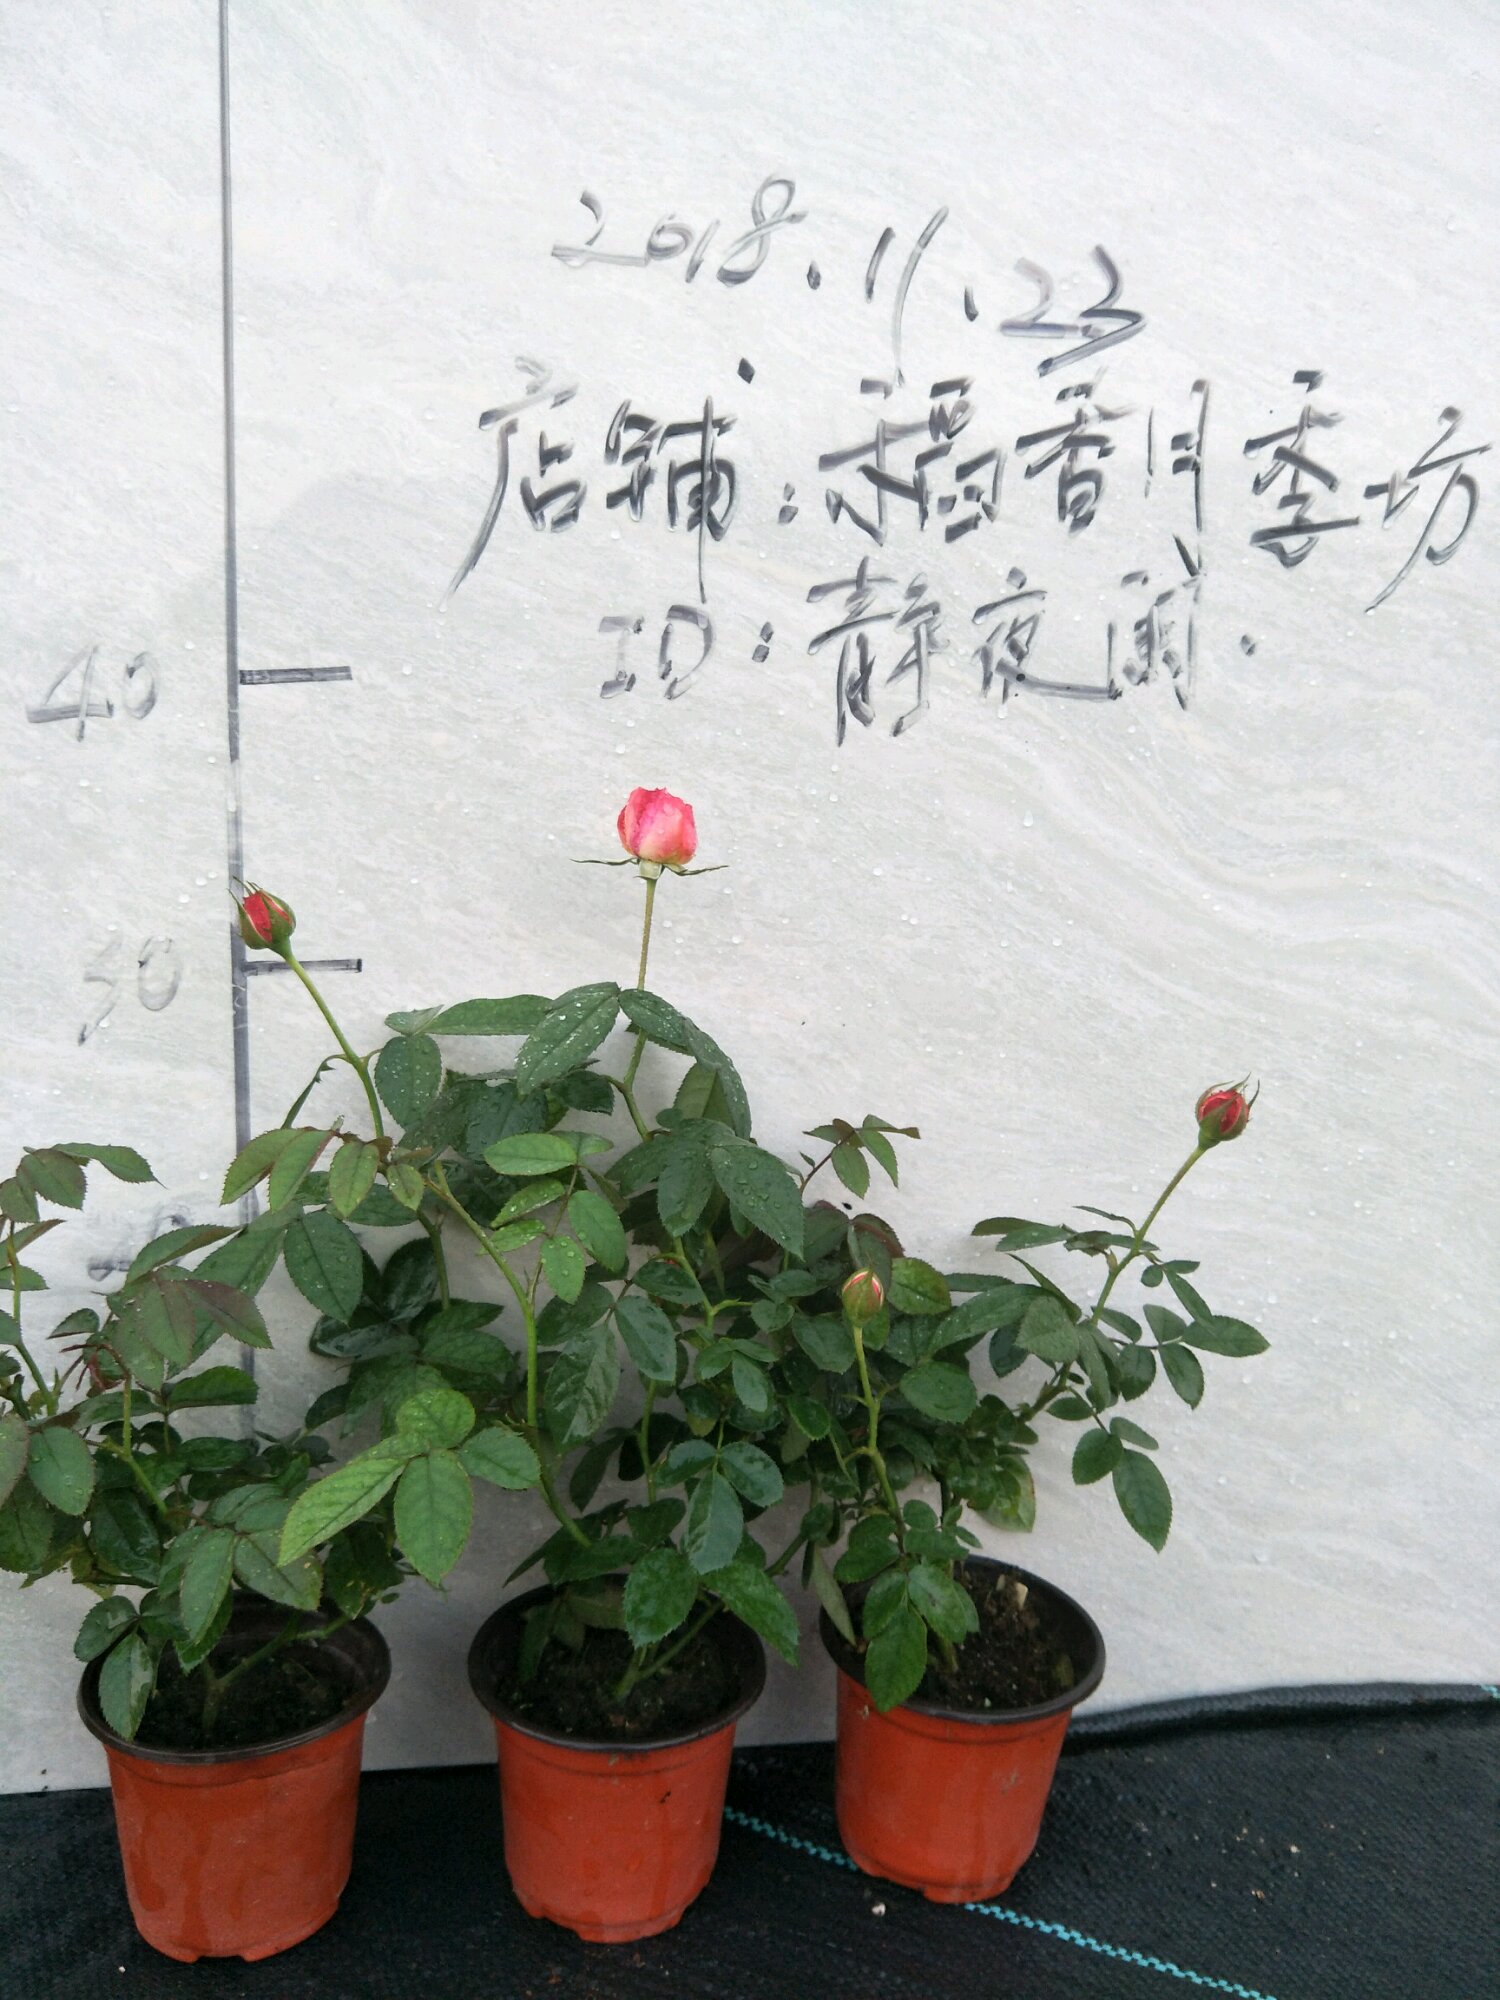 2018.11.23
店铺:稻香月季坊
ID:静夜阑.
40
30